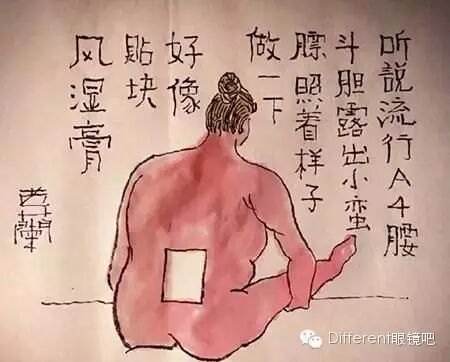 听說流行A4腰
斗胆露出小蛮
膘照着样子
做一下
好像
贴块
风湿膏
Different眼镜吧